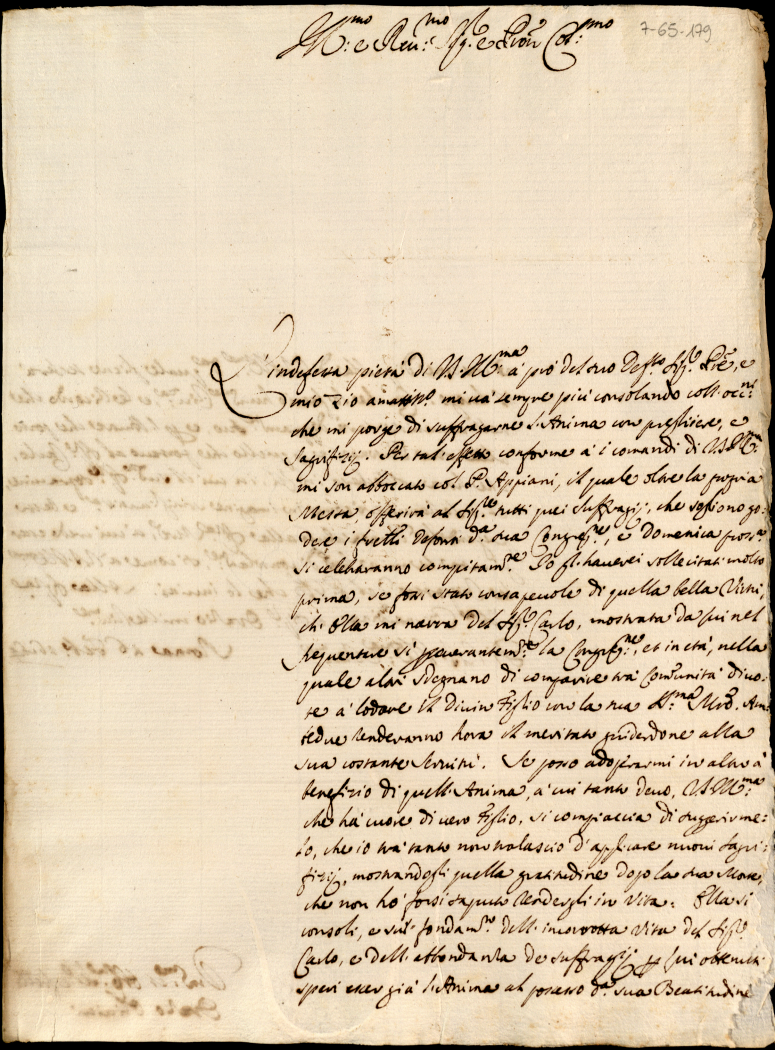 Ill:mo e Reu:mo Sig.e e Pron Col:mo
7-65-179
L'indefessa pietà di V.S. Ill:ma à prò del suo Def:to Sig:r Pre, e
mio Zio amatis:o mi uà sempre più consolando coll'occ:ni
che mi porge di suffragarne l'Anima con preghiere, e
Sagrifizij. Per tal effetto conforme à i comandi di V.S. Ill:ma
mi son abboccato col P. Appiani, il quale oltre la propria
Messa, offerirà al Sig:re tutti quei suffragij, che sogliono go-
dere i frelli defonti d:a sua Congreg:ne, e Domenica pross:a
si celebraranno compitam:te. Io gl'hauerei sollecitati molto
prima, se fossi stato consapeuole di quella bella Virtù,
ch'Ella mi narra del Sig:r Carlo, mostrata da lui nel
frequentare sì perseuerantem:te la Congreg:ne, et in età, nella
quale altri sdegnano di comparire trà Comunità diuo-
te à lodare il Diuin Figlio con la sua SS:ma Mad:e. Am-
bedue renderanno hora il meritato guiderdone alla
sua costante Seruitù. Se posso adoperarmi in altro à
benefizio di quell'Anima, à cui tanto deuo, V.S. Ill:ma
che hà cuore di uero Figlio, si compiaccia di suggerirme-
lo, che io trà tanto non tralascio d'applicare nuoui Sagri-
fizij, mostrandogli quella gratitudine dopo la sua Morte,
che non hò forsi saputo rendergli in Vita. Ella si
consoli, e sul fondam:to dell'incorrotta Vita del Sig:r
Carlo, e dell'abbondanza de suffragij p lui ottenuti
speri esser già l'Anima al possesso d:a sua Beatitudine